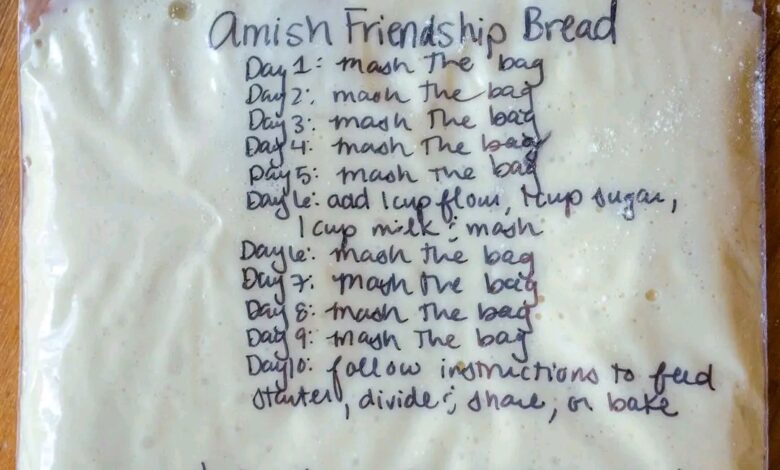 Amish Friendship Bread
Day 1: mash the bag
Day 2: mash the bag
Day 3: mash the bag
Day 4: mash the bag
Day 5: mash the bag
Day 6: add 1 cup flour, 1 cup sugar,
1 cup milk ; mash
Day 6: mash the bag
Day 7: mash the bag
Day 8: mash the bag
Day 9: mash the bag
Day 10: follow instructions to feed
starter, divide ; share, or bake